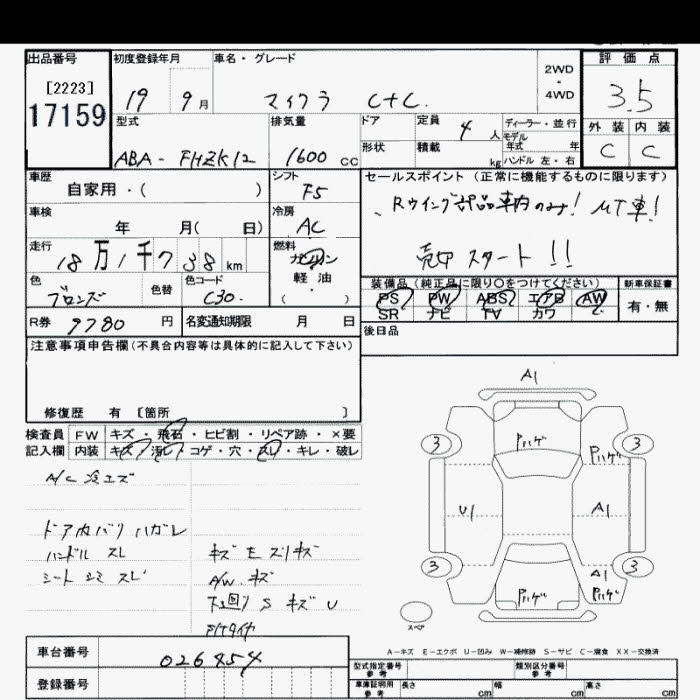 出品番号 初度登録年月 車名・グレード 2WD・4WD 評価点
[2223]
17159
19 9月 マイクラ C+C. 3.5
型式 排気量 ドア 定員 4人 ディーラー・並行 モデル 年式 年 外装 内装
ABA-FHZK12 1600cc 形状 積載 kg ハンドル 左・右 C C
車歴 シフト セールスポイント(正常に機能するものに限ります)
自家用・( ) F5
車検 冷房 Rウイング部品車内のみ! MT車!
年 月( 日) AC
走行 燃料 売切スタート!!
18万1千7 38km ガソリン
軽油・( )
色 色替 色コード 装備品(純正品に限り○をつけてください) 新車保証書
ブロンズ C30. PS PW ABS エアB AW 有・無
SR ナビ TV カワ
R券 9780円 名変通知期限 月 日 後日品
注意事項申告欄(不具合内容等は具体的に記入して下さい)
修復歴 有 〔箇所 〕
検査員 FW キズ・飛石・ヒビ割・リペア跡・×要
記入欄 内装 キズ・汚レ・コゲ・穴・スレ・キレ・破レ
A/C 冷エズ
ドア内バリ ハガレ
ハンドル スレ
シート スレ
キズ
A/W キズ
下回り S キズ U
A1
3 Pハゲ Pハゲ 3
U1 A1
3 A1 3
Pハゲ Pハゲ
スペア
A-キズ E-エクボ U-凹み W-補修跡 S-サビ C-腐食 XX-交換済
車台番号 026454
登録番号
型式指定番号 参考 類別区分番号 参考
車庫証明用 参考 長さ cm 幅 cm 高さ cm